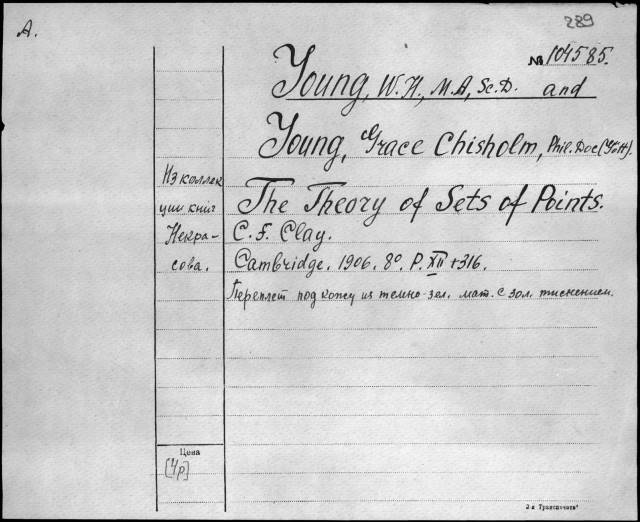 A.
289
№ 104585.
Young, W. H., M.A, Sc.D. and
Young, Grace Chisholm, Phil. Doc (Gött).
Из коллек
ции книг
Некра-
сова.
The Theory of Sets of Points.
C. F. Clay.
Cambridge. 1906. 8°. P. XII + 316.
Переплет под кожу из темно-зел. мат. с зол. тиснением.
Цена
[4р]
2-я